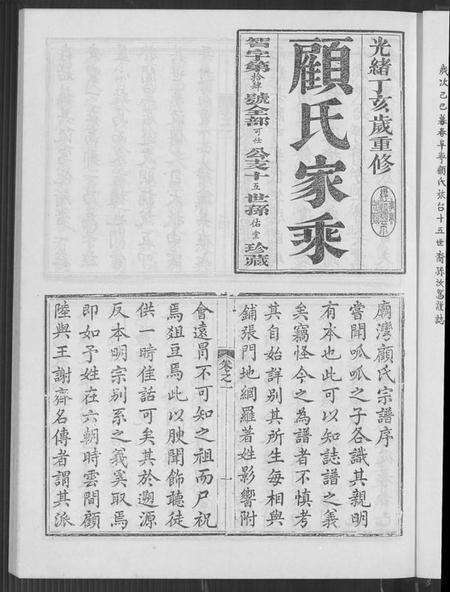 歲次己巳暮春阜寧顧氏族台十五世裔孫汝
光緒丁亥歲重修
顧氏家乘
智字第拾肆號全部可仕公支十五世孫佑堂珍藏
廟灣顧氏宗譜序
嘗聞呱呱之子各識其親明
有本也此可以知誌譜之義
矣竊怪今之為譜者不慎考
其自始詳别其所生每相與
鋪張門地網羅著姓影響附
卷之一
會遠冒不可知之祖而尸祝
焉俎豆焉此以腴聞飾聽徒
供一時佳話可矣其於遡源
反本明宗别系之義奚取焉
即如予姓在六朝時雲間顧
陸與王謝齊名傳者謂其派